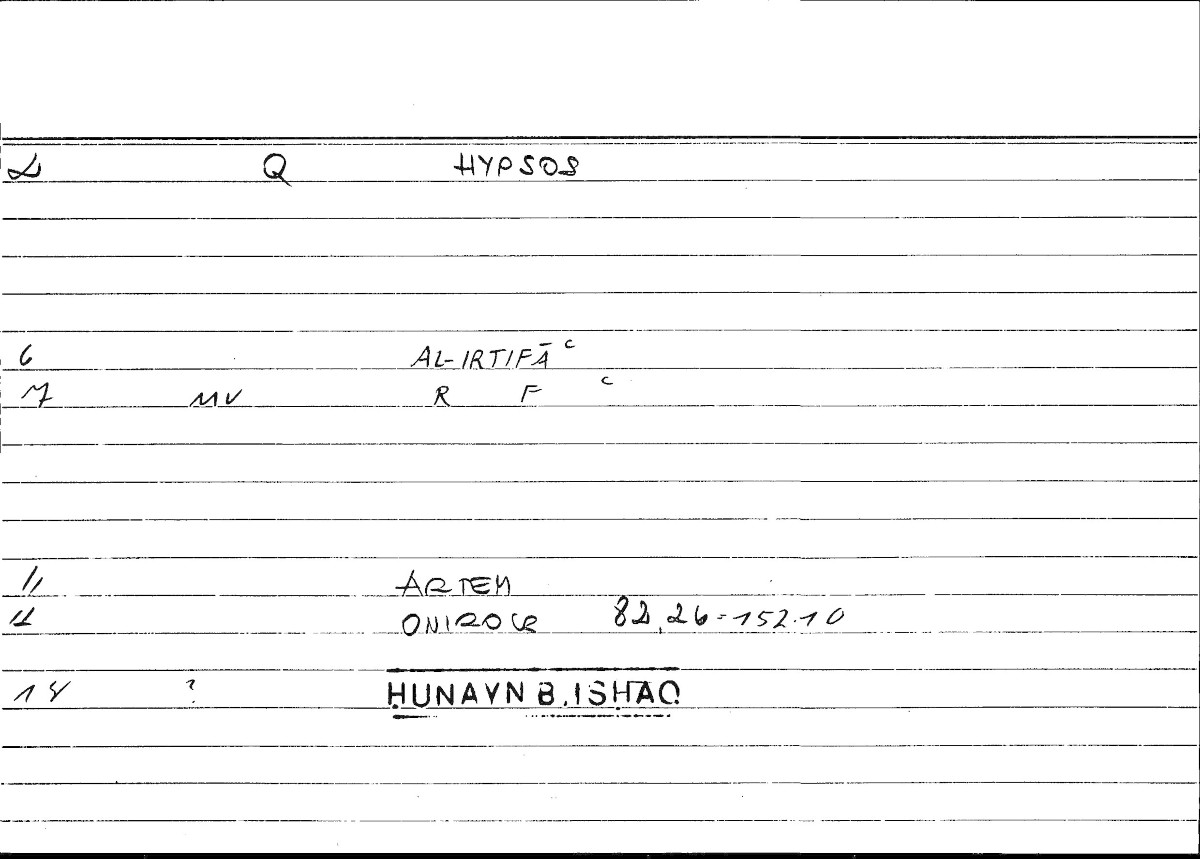 2 Q HYPSOS
6 AL-IRTIFĀ c
7 MV R F c
11 ARTEM
12 ONIROCR 82,26=152.10
14 ? HUNAYN B. ISHAQ